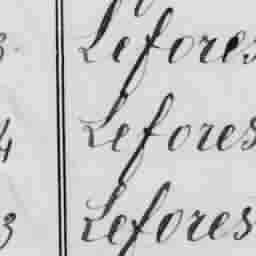 3. Lefores
4 Lefores
3 Lefores